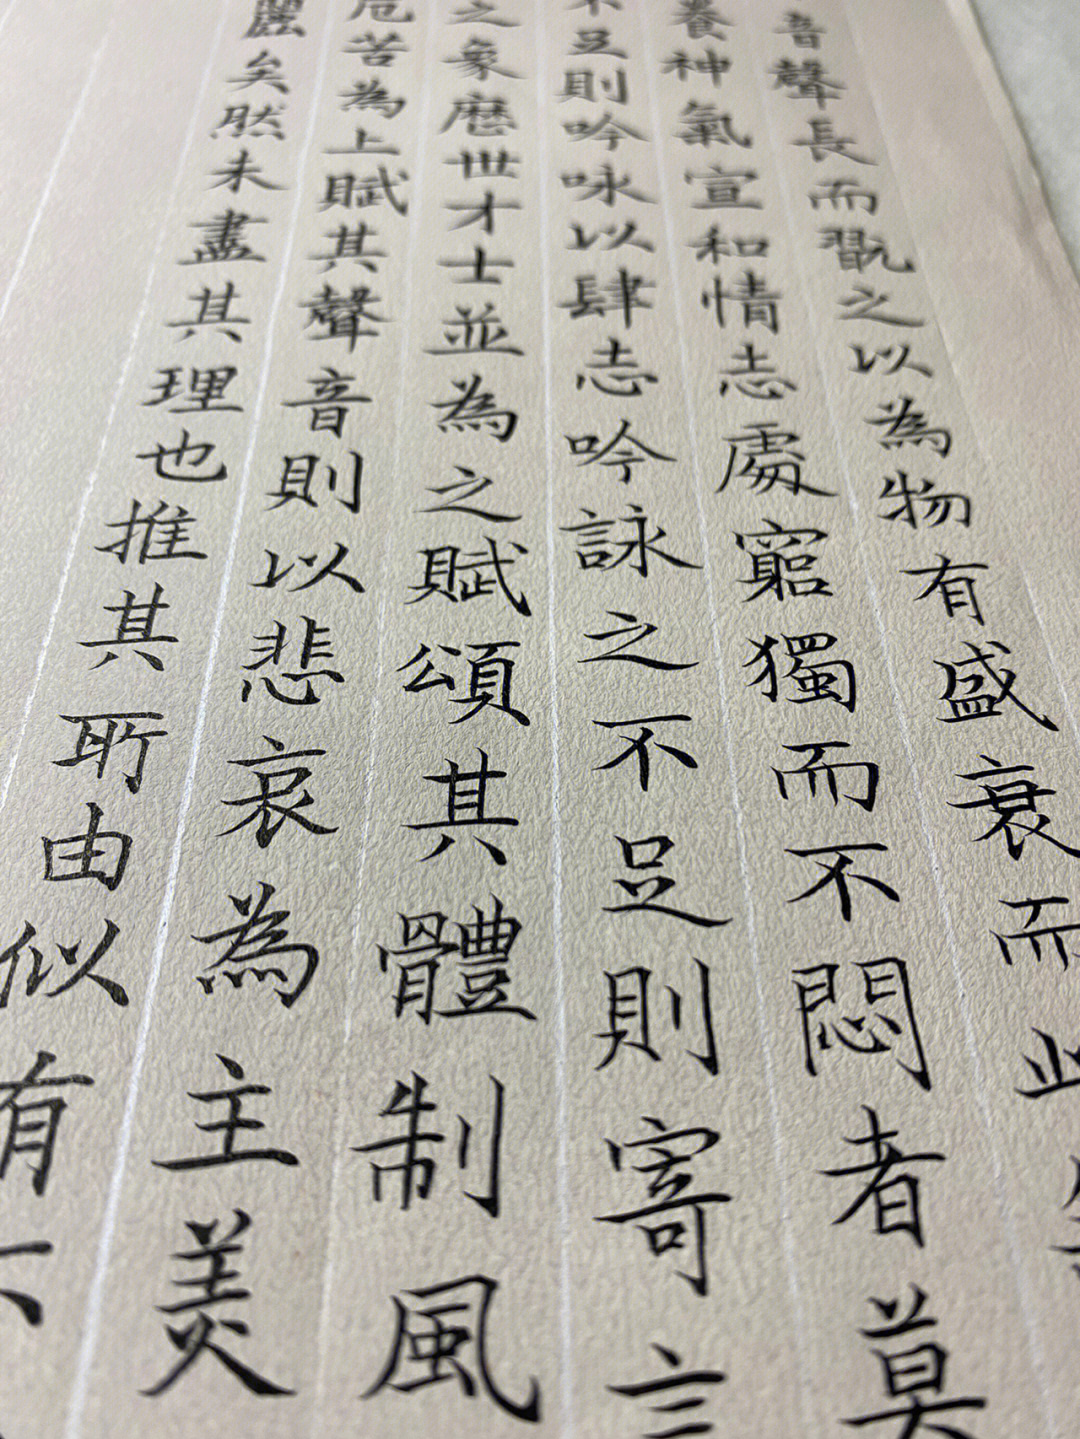 音聲長而翫之以為物有盛衰而此
養神氣宣和情志處窮獨而不悶者莫
不足則吟咏以肆志吟詠之不足則寄言
之象歷世才士並為之賦頌其體制風
危苦為上賦其聲音則以悲哀為主美
麗矣然未盡其理也推其所由似有不